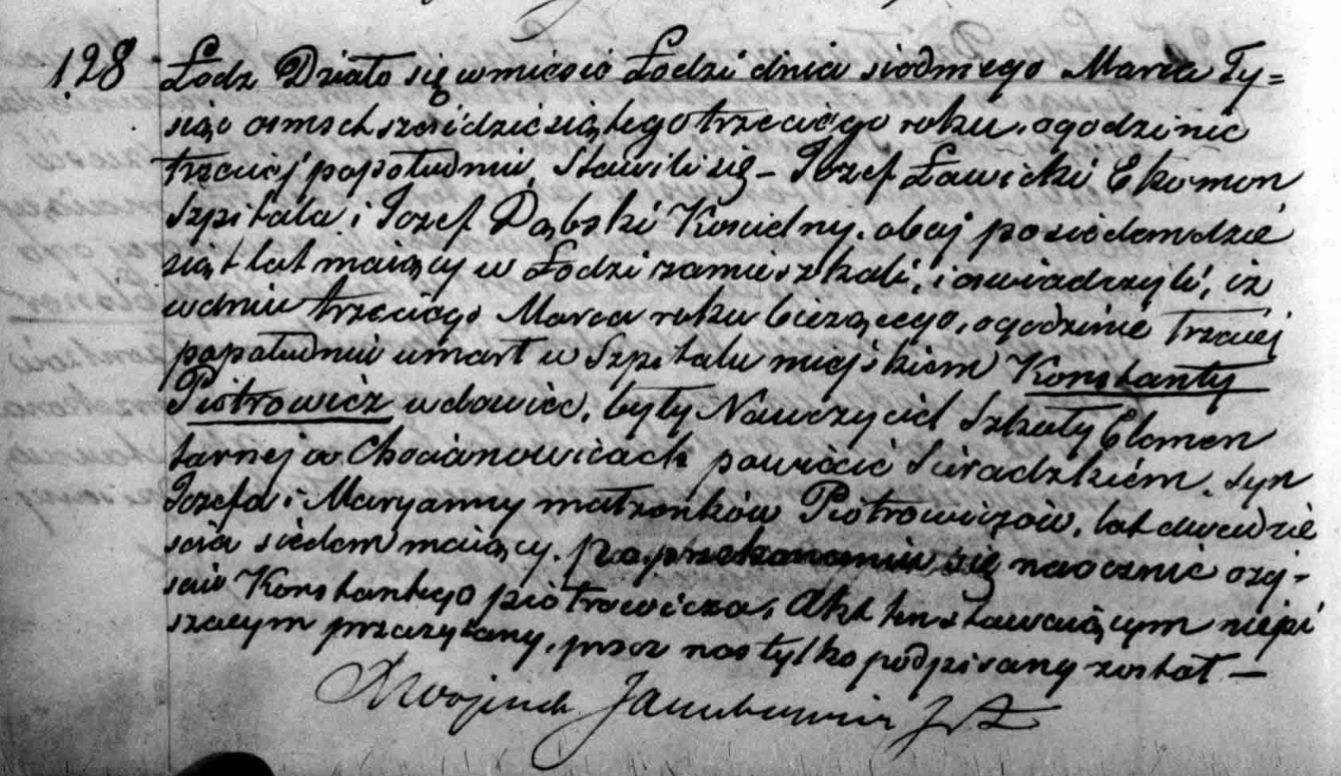 128 Łodz Działo się w mieście Łodzi dnia siódmego Marca Ty=
siąc ośmset sześćdziesiątego trzeciego roku, o godzinie
trzeciej popołudniu, Stawili się – Jozef Ławicki Ekonom
Szpitala i Jozef Dąbski Kościelny, obaj po siedemdzie
siąt lat maiący w Łodzi zamieszkali, i oswiadczyli, iż
w dniu trzeciego Marca roku bieżącego, o godzinie trzeciej
popołudniu umarł w Szpitalu miejskiem Konstanty
Piotrowicz wdowiec, były Nauczyciel Szkoły Elemen
tarnej w Chocianowicach powiecie Sieradzkiem, syn
Jozefa i Maryanny małżonków Piotrowiczów, lat dwadzie
scia siedem maiący. po przekonaniu się naocznie o zej-
sciu Konstantego Piotrowicza, Akt ten stawaiącym niepi
szącym przeczytany, przez nas tylko podpisany został –
X Wojciech Jakubowicz